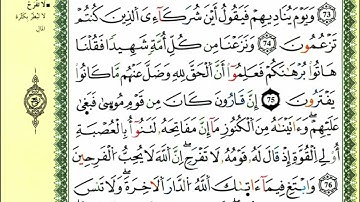 لا تفرح
لا تبطر بكثرة
المال
73 وَيَوْمَ يُنَادِيهِمْ فَيَقُولُ أَيْنَ شُرَكَآءِيَ ٱلَّذِينَ كُنتُمْ
تَزْعُمُونَ 74 وَنَزَعْنَا مِن كُلِّ أُمَّةٍ شَهِيدًا فَقُلْنَا
هَاتُوا۟ بُرْهَٰنَكُمْ فَعَلِمُوٓا۟ أَنَّ ٱلْحَقَّ لِلَّهِ وَضَلَّ عَنْهُم مَّا كَانُوا۟
يَفْتَرُونَ 75 إِنَّ قَٰرُونَ كَانَ مِن قَوْمِ مُوسَىٰ فَبَغَىٰ
عَلَيْهِمْ وَءَاتَيْنَٰهُ مِنَ ٱلْكُنُوزِ مَآ إِنَّ مَفَاتِحَهُۥ لَتَنُوٓأُ بِٱلْعُصْبَةِ
أُو۟لِى ٱلْقُوَّةِ إِذْ قَالَ لَهُۥ قَوْمُهُۥ لَا تَفْرَحْ إِنَّ ٱللَّهَ لَا يُحِبُّ ٱلْفَرِحِينَ
76 وَٱبْتَغِ فِيمَآ ءَاتَىٰكَ ٱللَّهُ ٱلدَّارَ ٱلْءَاخِرَةَ وَلَا تَنسَ